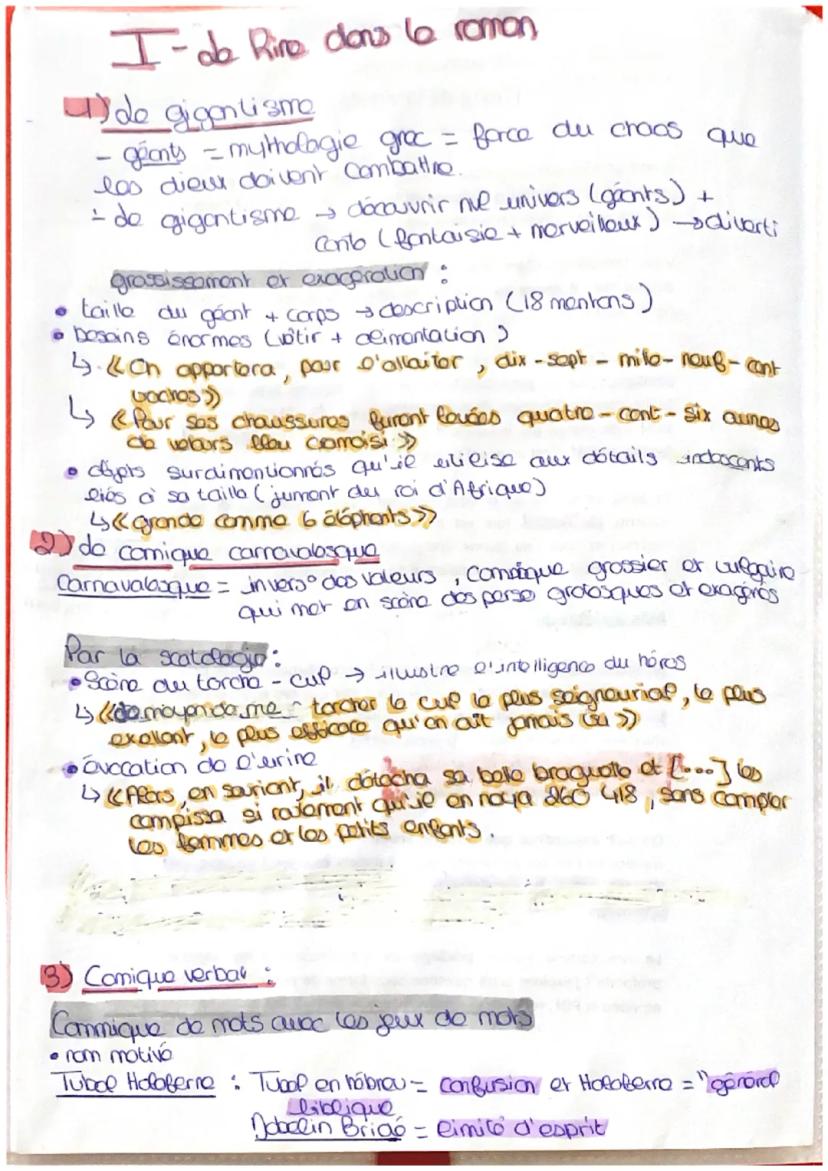 I - Le Rire dans le roman
1) Le gigantisme
- géants = mythologie grec = force du chaos que
les dieux doivent combattre.
- Le gigantisme → découvrir nvl univers (géants) +
conte (fantaisie + merveilleux) → diverti
grossissement et exagération :
• taille du géant + corps → description (18 mentons)
• besoins énormes (vêtir + alimentation)
↳ «On apporta, pour l'allaiter, dix-sept-mile-neuf-cent
vaches»
↳ «Pour ses chaussures furent louées quatre-cent-six aunes
de velours bleu cramoisi»
• objets surdimentionnés qu'il utilise aux détails indécents
liés à sa taille (jument du roi d'Afrique)
↳ «grande comme 6 éléphants»
2) Le comique carnavalesque
Carnavalesque = invers° des valeurs, comique grossier et vulgaire
qui met en scène des perso grotesques et exagérés
Par la scatologie :
• Scène du torche-cul → illustre l'intelligence du héros
↳ «Le moyen de me torcher le cul le plus seigneurial, le plus
exellent, le plus efficace qu'on ait jamais vu»
• évocation de l'urine
↳ «Alors, en souriant, il détacha sa belle braguette et [...] les
compissa si roidement qu'il en noya 260 418, sans compter
les femmes et les petits enfants.
3) Comique verbal :
Commique de mots avec les jeux de mots
• nom motivé
Tubal Holoferne : Tubal en hébreu = confusion et Holoferne = "général
biblique
Jobelin Bridé = limité d'esprit